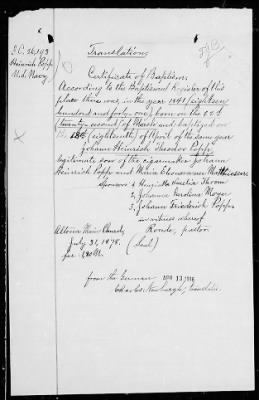 I.C. 26,193
Heinrich Popp
U.S. Navy
Translation
Certificate of Baptism
According to the Baptismal Register of this
place there was, in the year 1841 (eighteen
hundred and forty one) born on the 22d
(twenty second) of March and baptized on
the 18th (eighteenth) of April of the same year
Johann Heinrich Theodor Popp
legitimate son of the cigarmaker Johann
Heinrich Popp and Maria
Sponsors: 1, Henrietta Amalia
2, Johanna Carolina Meyer
3, Johann Friederich Popp
in witness whereof
Altona Main Church, Ronde, pastor
July 31, 1878. (Seal)
from the German APR 13
Charles Newburgh, translator